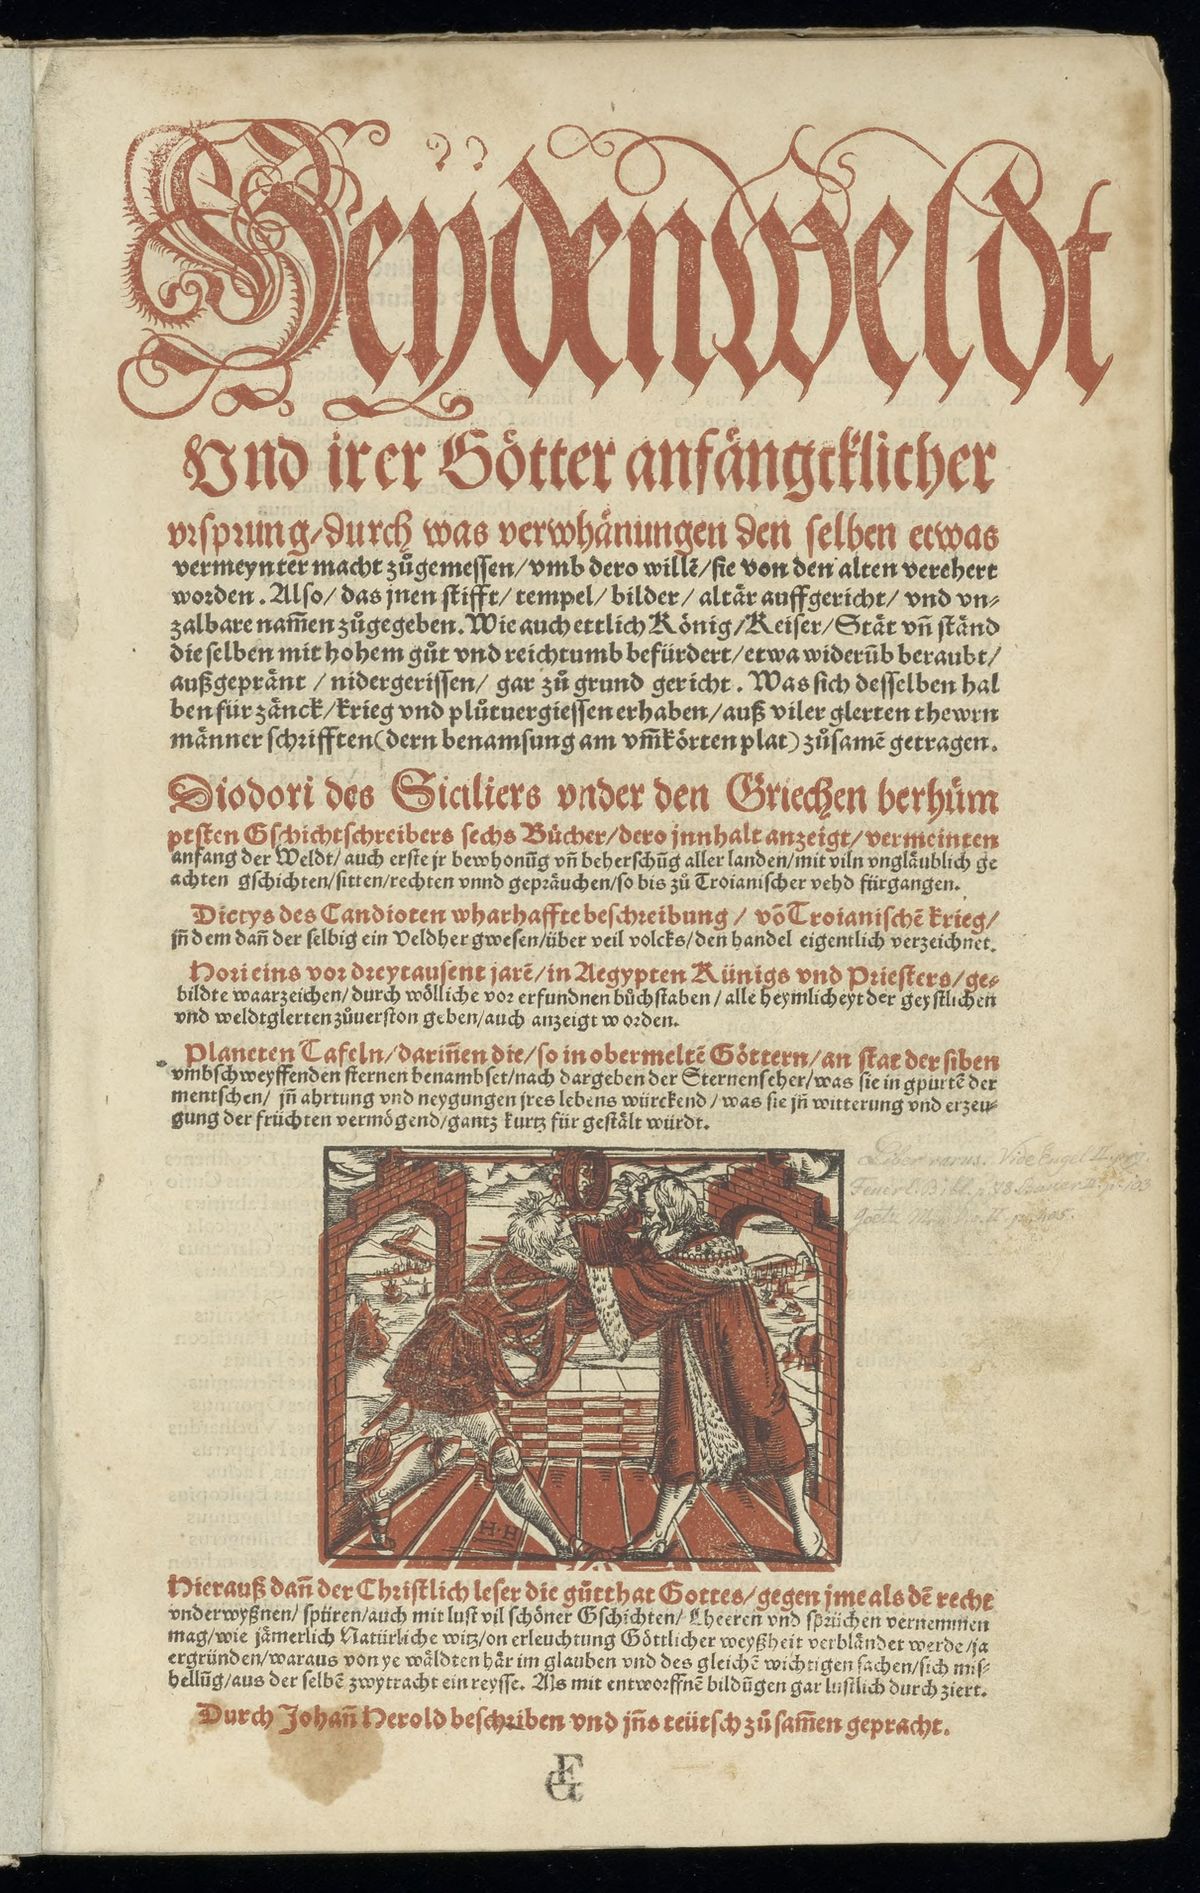 Heydenweldt
Vnd irer Götter anfängcklicher
vrsprung/durch was verwhänungen den selben etwas
vermeynter macht zůgemessen/vmb dero willẽ/sie von den alten verehert
worden. Also/ das jnen stifft/ tempel/ bilder/ altär auffgericht/ vnd vn-
zalbare nam̃en zůgegeben. Wie auch ettlich König/Keiser/Stät vñ ständ
die selben mit hohem gůt vnd reichtumb befürdert/etwa widerũb beraubt/
außgepränt / nidergerissen/ gar zů grund gericht. Was sich desselben hal
ben für zänck/krieg vnd plůtuergiessen erhaben/auß viler glerten thewrn
männer schrifften(dern benamsung am vm̃körten plat) zůsamẽ getragen.
Diodori des Siciliers vnder den Griechen berhüm
ptsten Gschichtschreibers sechs Bücher/dero jnnhalt anzeigt/vermeinten
anfang der Weldt/ auch erste jr bewhonũg vñ beherschũg aller landen/mit viln vngläublich ge
achten gschichten/sitten/rechten vnnd gepräuchen/so bis zů Troianischer vehd fürgangen.
Dictys des Candioten wharhaffte beschreibung / võ Troianischẽ krieg/
jñ dem dañ der selbig ein Veldher gwesen/über veil volcks/den handel eigentlich verzeichnet.
Hori eins vor dreytausent jarẽ/in Aegypten Künigs vnd Priesters/ge-
bildte waarzeichen/durch wölliche vor erfundnen bůchstaben/ alle heymlicheyt der geystlichen
vnd weldtglerten zůuerston geben/auch anzeigt worden.
Planeten Tafeln/dariñen die/so in obermeltẽ Göttern/an stat der siben
vmbschweyffenden sternen benambset/nach dargeben der Sternenseher/was sie in gpurtẽ der
mentschen/ jñ ahrtung vnd neygungen jres lebens würckend/was sie jñ witterung vnd erzeu-
gung der früchten vermögend/gantz kurtz für gestält würdt.
Liber rarus. Vide Engel
H·H
Hierauß dañ der Christlich leser die gůtthat Gottes/gegen jme als dẽ recht
vnderwyßnen/ spüren/auch mit lust vil schöner Gschichten/ Lheeren vnd sprüchen vernemmen
mag/wie jämerlich Natürliche witz/on erleuchtung Göttlicher weyßheit verbländet werde/ja
ergründen/waraus von ye wäldten här im glauben vnd des gleichẽ wichtigen sachen/sich mis-
hellũg/aus der selbẽ zwytracht ein reysse. Als mit entworffnẽ bildũgen gar lustlich durch ziert.
Durch Johañ Herold beschriben vnd jñs teütsch zů sam̃en gepracht.